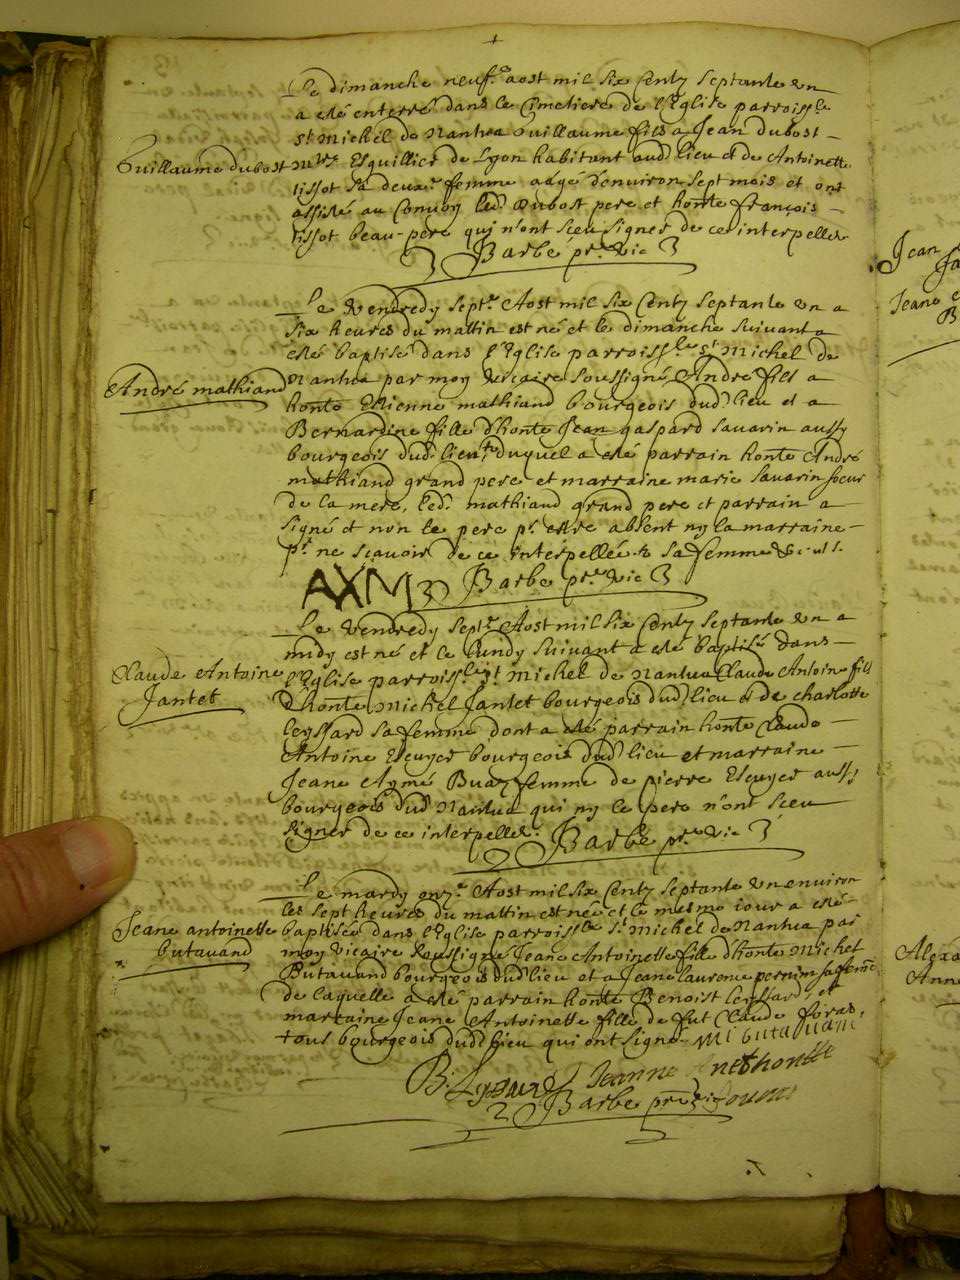 Le dimanche neuf.e aost mil six Centz septante un
a esté enterré dans le Cimetiere de l'Eglise parroiss.le
st Michel de Nantua Guillaume fils a Jean dubost
Guillaume dubost
m.tre Esguillier de Lyon habitant aud.t lieu et de Antoinette
tissot sa deux.e femme aagé d'environ sept mois et ont
assisté au Convoy led.t dubost pere et honte françois
tissot beau-pere qui n'ont sceu signer de ce interpellez
Barbe p.re vic
Le vendredy sept.e Aost mil six Centz septante un a
six heures du mattin est né et le dimanche suivant a
esté baptisé dans l'Eglise parroiss.le s.t Michel de
André mathiand
Nantua par moy vicaire soussigné André fils a
honte Estienne mathiand bourgeois dud.t lieu et a
Bernardine fille d'honte Jean gaspard sauarin aussy
bourgeois dud.t lieu, duquel a esté parrain honte André
mathiand grand pere et marraine marie sauarin soeur
de la mere, led.t mathiand grand pere et parrain a
signé et non le pere p.r estre absent ny la marraine
p.r ne scavoir de ce interpellée sa femme
AXM Barbe p.re vic
Le vendredy sept.e Aost mil six Centz septante un a
midy est né et le lundy suivant a esté baptisé dans
Claude Antoine
Jantet
l'Eglise parroiss.le s.t Michel de Nantua Claude Antoine fils
d'honte Michel Jantet bourgeois dud.t lieu et de charlotte
leyssard sa femme dont a esté parrain honte Claude
Antoine Escuyer bourgeois dud.t lieu et marraine
Jeane Aymé femme de pierre Escuyer aussy
bourgeois dud.t Nantua qui ny le pere n'ont sceu
signer de ce interpellez.
Barbe p.re vic
Le mardy onz.e Aost mil six Centz septante un environ
les sept heures du mattin est née et le mesme iour a esté
Jeane antoinette
butavand
baptisée dans l'Eglise parroiss.le s.t Michel de Nantua par
moy vicaire soussigné Jeane Antoinette fille d'honte Michel
Butavand bourgeois dud.t lieu et a Jeane laurence pernin sa feme
de laquelle a esté parrain honte Benoist leyssard, et
marraine Jeane Antoinette fille de fut Claude
tous bourgeois dud.t lieu qui ont signé mi butavand
B. Jeanne
Barbe p.re